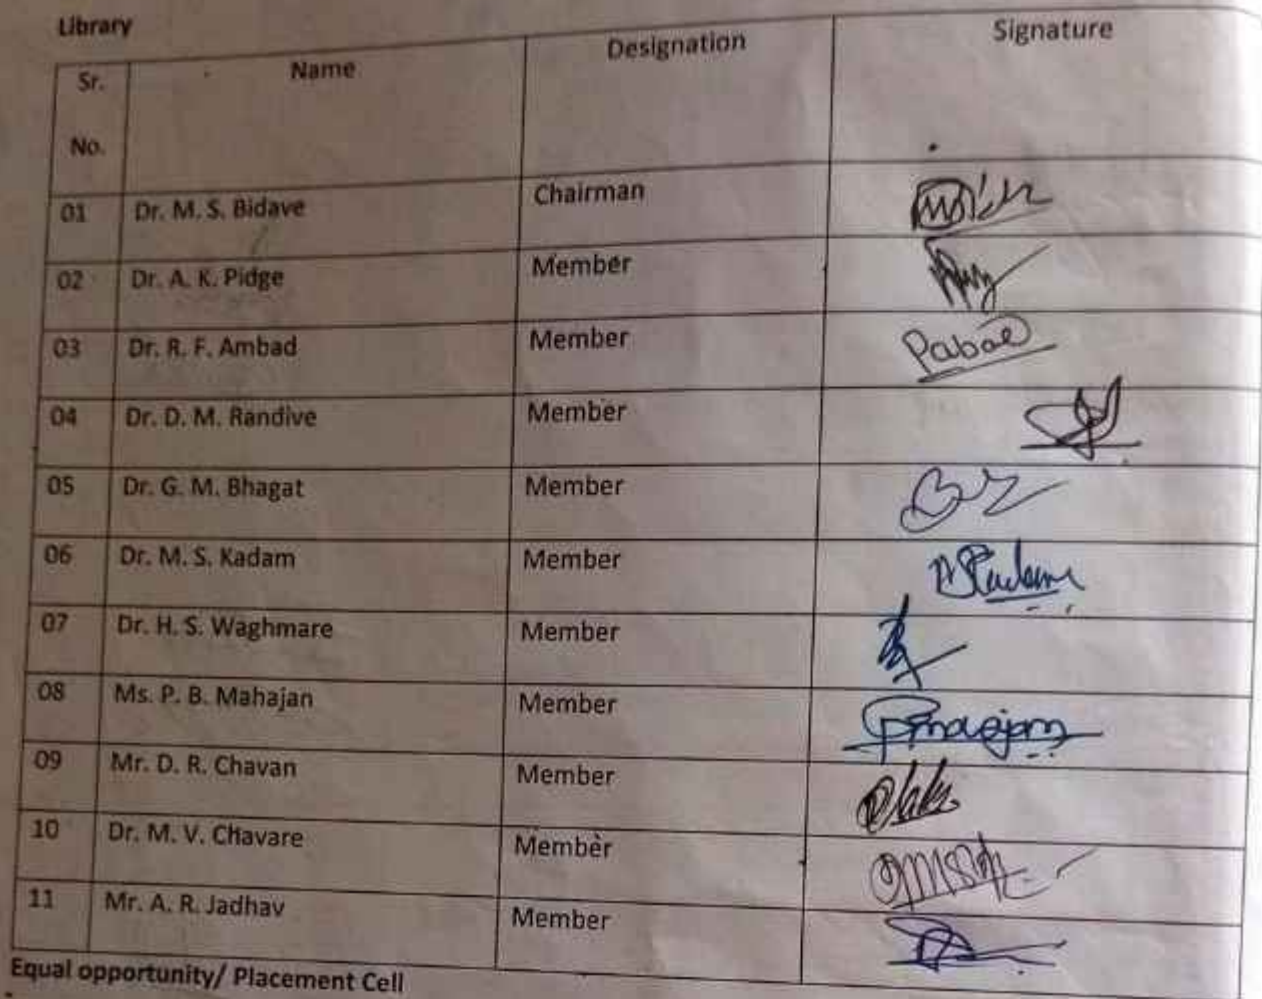 Library
Sr. No. Name Designation Signature
01 Dr. M. S. Bidave Chairman
02 Dr. A. K. Pidge Member
03 Dr. R. F. Ambad Member
04 Dr. D. M. Randive Member
05 Dr. G. M. Bhagat Member
06 Dr. M. S. Kadam Member
07 Dr. H. S. Waghmare Member
08 Ms. P. B. Mahajan Member
09 Mr. D. R. Chavan Member
10 Dr. M. V. Chavare Member
11 Mr. A. R. Jadhav Member
Equal opportunity/ Placement Cell